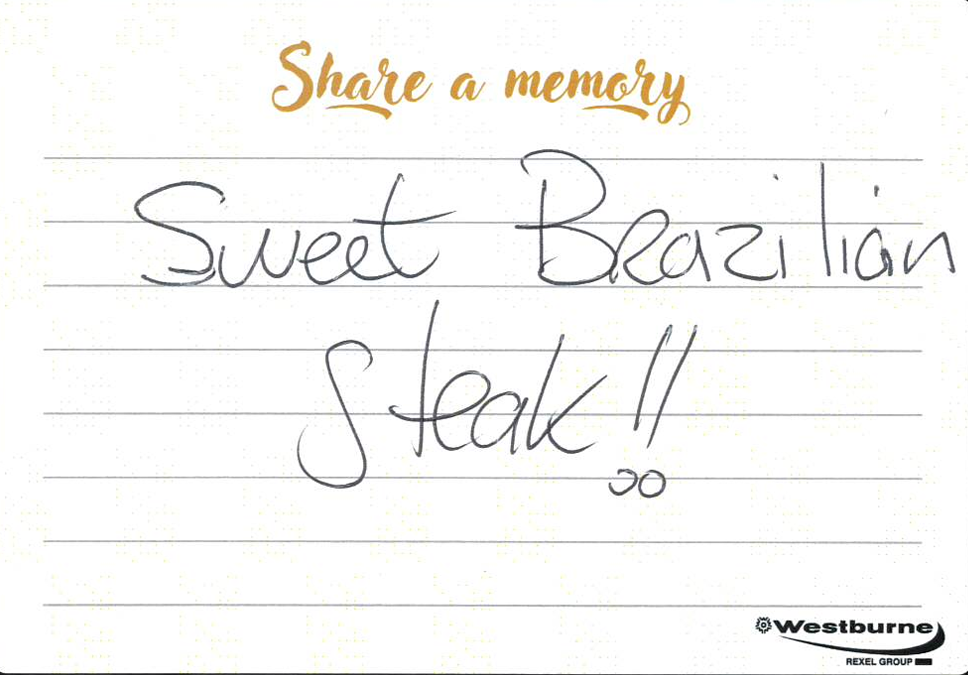 Share a memory
Sweet Brazilian
Steak!!
Westburne
REXEL GROUP